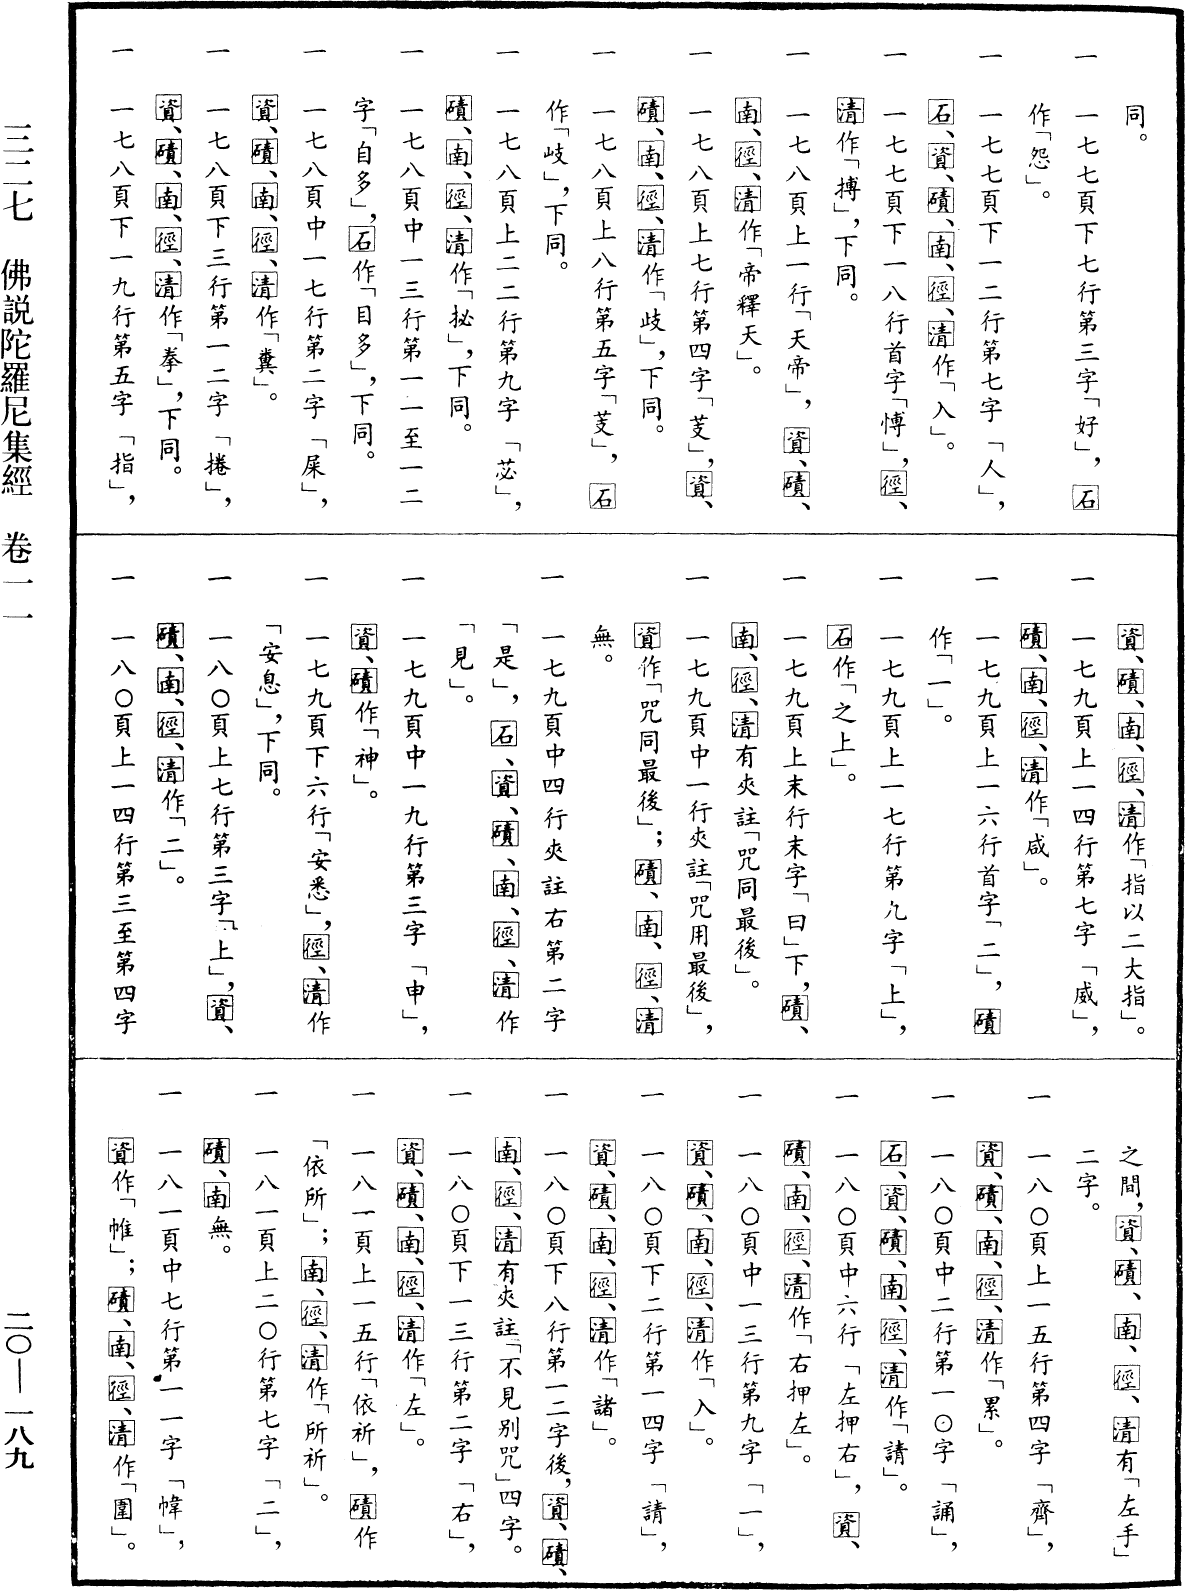 同。
一 一七七頁下七行第三字「好」，石
作「怨」。
一 一七七頁下一二行第七字「人」，
石、資、磧、南、徑、清作「入」。
一 一七七頁下一八行首字「愽」，徑、
清作「搏」，下同。
一 一七八頁上一行「天帝」，資、磧、
南、徑、清作「帝釋天」。
一 一七八頁上七行第四字「芰」，資、
磧、南、徑、清作「歧」，下同。
一 一七八頁上八行第五字「芰」，石
作「岐」，下同。
一 一七八頁上二二行第九字「苾」，
磧、南、徑、清作「祕」，下同。
一 一七八頁中一三行第一一至一二
字「自多」，石作「目多」，下同。
一 一七八頁中一七行第二字「屎」，
資、磧、南、徑、清作「糞」。
一 一七八頁下三行第一二字「捲」，
資、磧、南、徑、清作「拳」，下同。
一 一七八頁下一九行第五字「指」，
資、磧、南、徑、清作「指以二大指」。
一 一七九頁上一四行第七字「威」，
磧、南、徑、清作「咸」。
一 一七九頁上一六行首字「二」，磧
作「一」。
一 一七九頁上一七行第九字「上」，
石作「之上」。
一 一七九頁上末行末字「曰」下，磧、
南、徑、清有夾註「咒同最後」。
一 一七九頁中一行夾註「咒用最後」，
資作「咒同最後」；磧、南、徑、清
無。
一 一七九頁中四行夾註右第二字
「是」，石、資、磧、南、徑、清作
「見」。
一 一七九頁中一九行第三字「申」，
資、磧作「神」。
一 一七九頁下六行「安悉」，徑、清作
「安息」，下同。
一 一八〇頁上七行第三字「上」，資、
磧、南、徑、清作「二」。
一 一八〇頁上一四行第三至第四字
之間，資、磧、南、徑、清有「左手」
二字。
一 一八〇頁上一五行第四字「齊」，
資、磧、南、徑、清作「累」。
一 一八〇頁中二行第一〇字「誦」，
石、資、磧、南、徑、清作「請」。
一 一八〇頁中六行「左押右」，資、
磧、南、徑、清作「右押左」。
一 一八〇頁中一三行第九字「一」，
資、磧、南、徑、清作「入」。
一 一八〇頁下二行第一四字「請」，
資、磧、南、徑、清作「諸」。
一 一八〇頁下八行第一二字後，資、磧、
南、徑、清有夾註「不見別咒」四字。
一 一八〇頁下一三行第二字「右」，
資、磧、南、徑、清作「左」。
一 一八一頁上一五行「依祈」，磧作
「依所」；南、徑、清作「所祈」。
一 一八一頁上二〇行第七字「二」，
磧、南無。
一 一八一頁中七行第一一字「幃」，
資作「帷」；磧、南、徑、清作「圍」。
三二七 佛説陀羅尼集經 卷一一
二〇—一八九